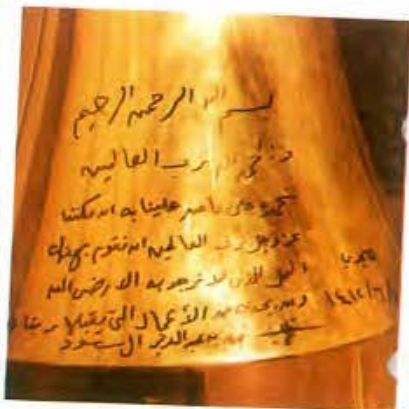 بسم الله الرحمن الرحيم
والحمد لله رب العالمين
نحمده على ما من علينا به ان مكننا
عز وجل رب العالمين ان نقوم بهذا
العمل الذي لا نرجو به الا رضى الله
١٤١٢/٦/
من الأعمال التي يتقبلها
فهد بن عبدالعزيز آل سعود